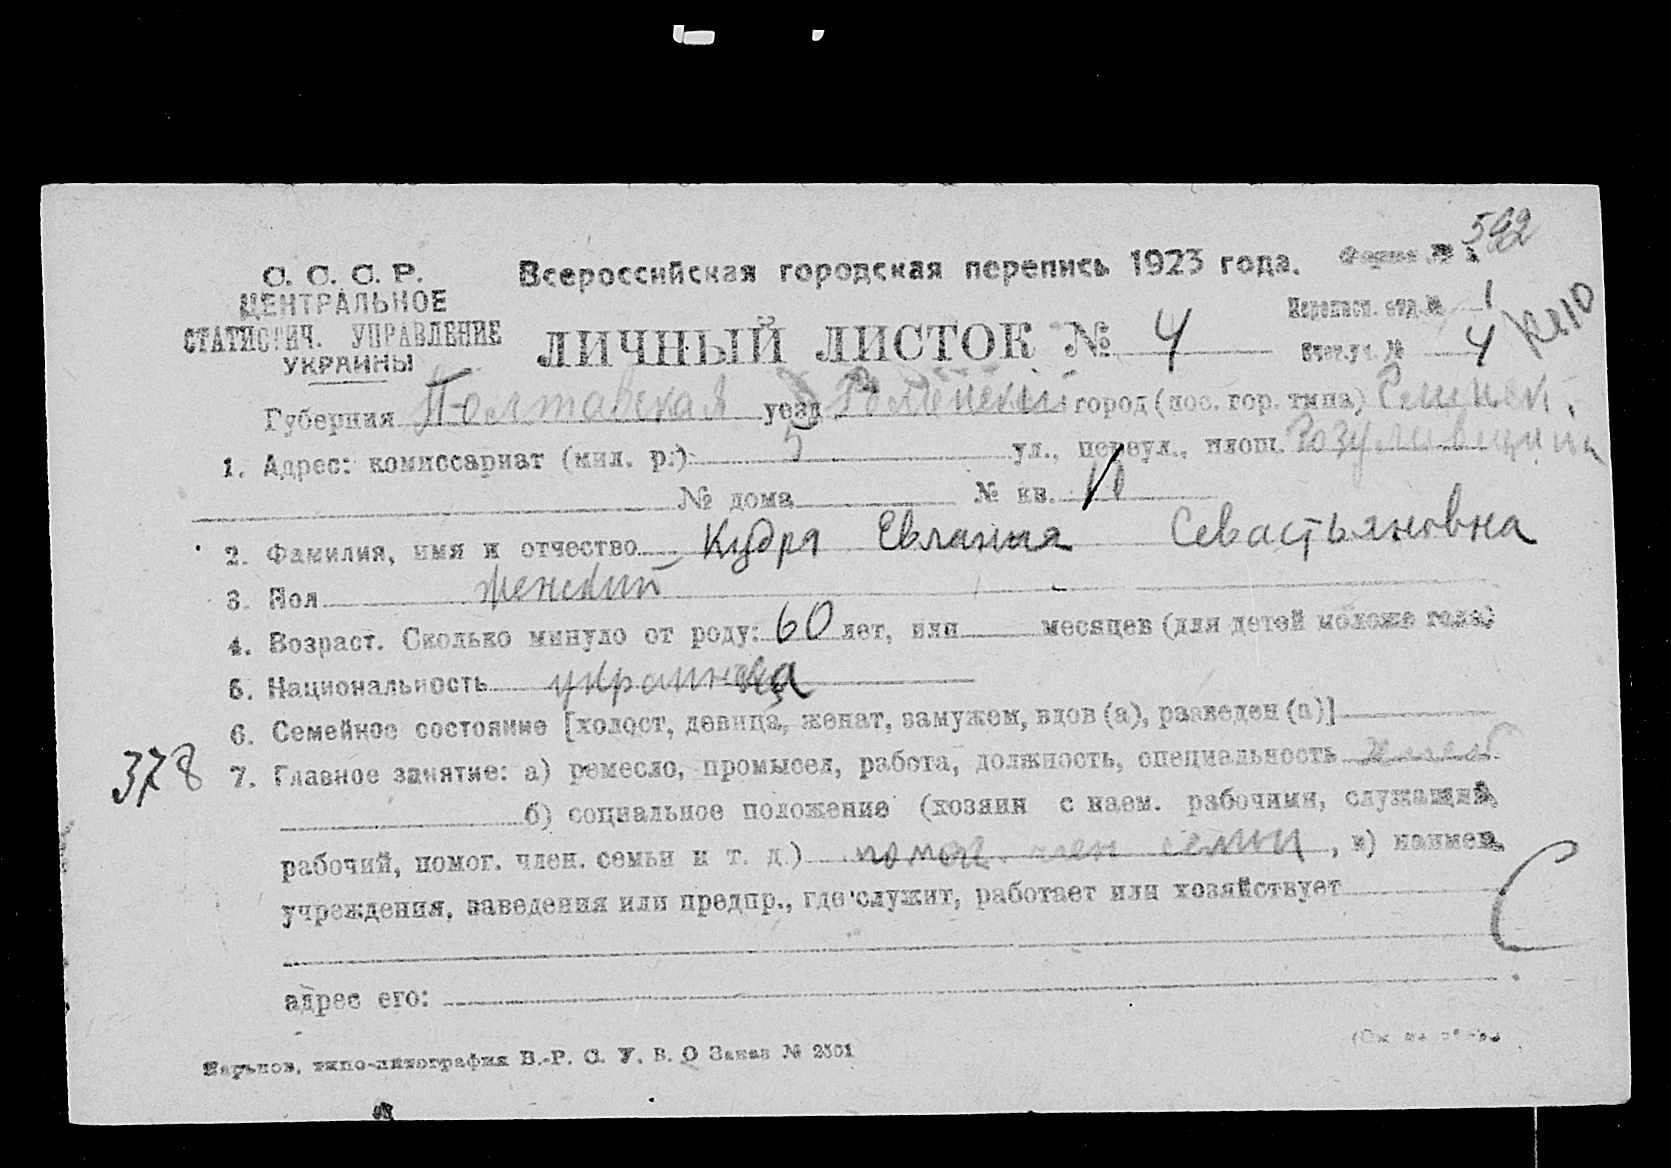 592
С. С. С. Р. Всероссийская городская перепись 1923 года. Форма № 1
ЦЕНТРАЛЬНОЕ
СТАТИСТИЧ. УПРАВЛЕНИЕ
УКРАИНЫ
ЛИЧНЫЙ ЛИСТОК № 4
Переписн. отд. № 1
Счетн. уч. № 4
Губерния Полтавская уезд Роменский город (пос. гор. типа)
1. Адрес: комиссариат (мил. р.) 5 ул., переул., площ.
№ дома № кв.
2. Фамилия, имя и отчество Кудря Евлания Севастьяновна
3. Пол женский
4. Возраст. Сколько минуло от роду: 60 лет, или месяцев (для детей моложе года)
5. Национальность украинка
6. Семейное состояние [холост, девица, женат, замужем, вдов (а), разведен (а)]
378
7. Главное занятие: а) ремесло, промысел, работа, должность, специальность
б) социальное положение (хозяин с наем. рабочими, служащий,
рабочий, помог. член. семьи и т. д.) помог. член семьи, в) наимен.
учреждения, заведения или предпр., где служит, работает или хозяйствует
С
адрес его:
Харьков, типо-литография В.-Р. С. У. В. О Заказ № 2501